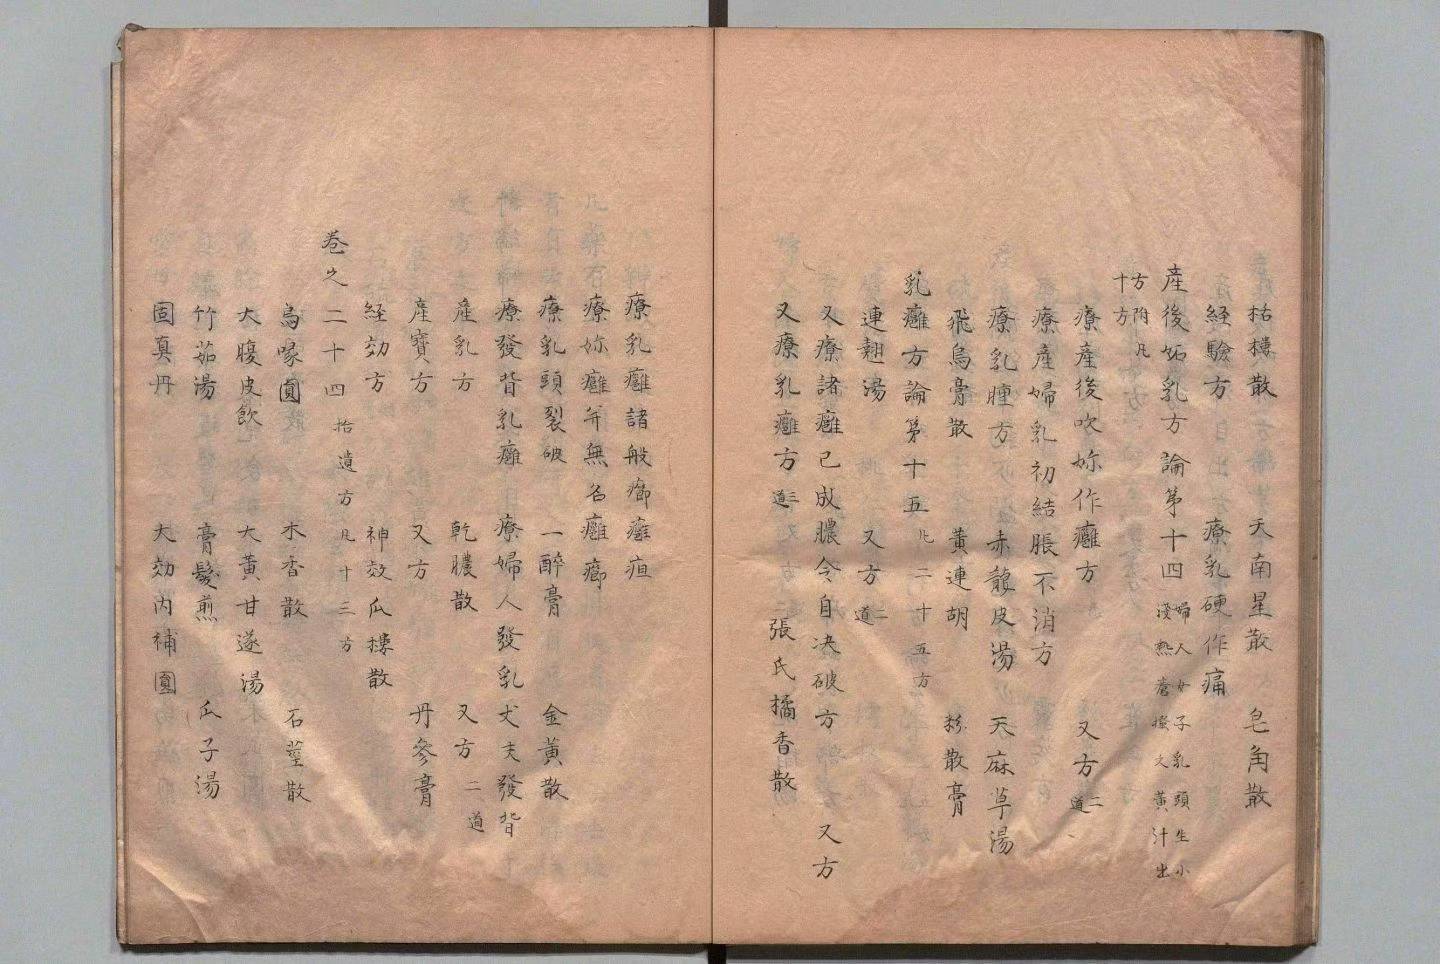 枯樓散 天南星散 皂角散
経驗方 療乳硬作痛
産後妬乳方論第十四 婦人女子乳頭生小
淺熱瘡搔之黃汁出
方附凡
十方
療産後吹妳作癰方 又方二道
療産婦乳初結脹不消方
療乳腫方 赤龍皮湯 天麻草湯
飛烏膏散 黃連胡 粉散膏
乳癰方論第十五 凡二十五方
連翹湯 又方二道
又療諸癰已成膿令自决破方 又方
又療乳癰方三道 張氏橘香散
療乳癰諸般癤癰疽
療妳癰并無名癰癤
療乳頭裂破 一醉膏 金黃散
療發背乳癰 療婦人發乳丈夫發背
産乳方 乾膿散 又方二道
産寶方 又方 丹參膏
経効方 神效瓜樓散
卷之二十四 拾遺方凡十三方
烏喙圓 木香散 石莖散
大腹皮飲 大黃甘遂湯
竹茹湯 膏髮煎 瓜子湯
固真丹 大効内補圓